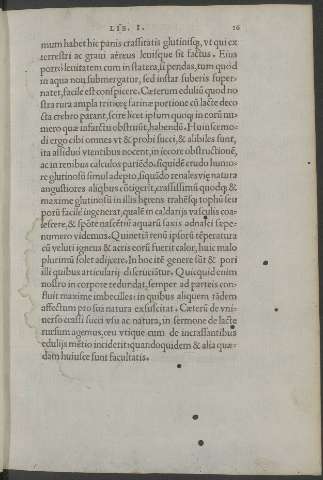 LIB. I. 26
mum habet hic panis crassitatis glutinisq́;, vt qui ex
terrestri ac graui aëreus leuisque sit factus. Eius
porrò leuitatem cum in statera, si pendas, tum quòd
in aqua non submergatur, sed instar suberis super-
natet, facile est conspicere. Cæterum eduliũ quod no
stra rura ampla triticeę farinæ portione cũ lacte deco
cta crebro parant, scire licet ipsum quoq; in eorũ nu
mero quæ infarctũ obstruũt, habendũ. Huiuscemo-
di ergo cibi omnes vt & probi succi, & alibiles sunt,
ita assiduò vtentibus nocent, in iecore obstructionẽ,
ac in renibus calculos pariẽdo. siquidẽ crudo humo-
re glutinosũ simul adepto, siquãdo renales vię natura
angustiores aliqbus cõtigerit, crassissimũ quodq; &
maxime glutinosũ in illis hęrens trahẽsq; tophũ seu
porũ facilè ingenerat, qualẽ in caldarijs vasculis coa-
lescere, & spõte nascẽtiũ aquarũ saxis adnasci sæpe-
numero videmus. Quinetiã renũ ipsorũ tẽperatura
cũ veluti igneus & acris eorũ fuerit calor, huic malo
plurimũ solet adijcere. In hoc itẽ genere sũt & pori
illi quibus articularij discruciãtur. Quicquid enim
nostro in corpore redundat, semper ad parteis con-
fluit maxime imbecilles: in quibus aliquem tãdem
affectum pro sua natura exsuscitat. Cæterũ de vni-
uerso crassi succi vsu ac natura, in sermone de lacte
rursum agemus, ceu vtique cum de incrassantibus
edulijs mẽtio inciderit: quandoquidem & alia quæ-
dam huiusce sunt facultatis.